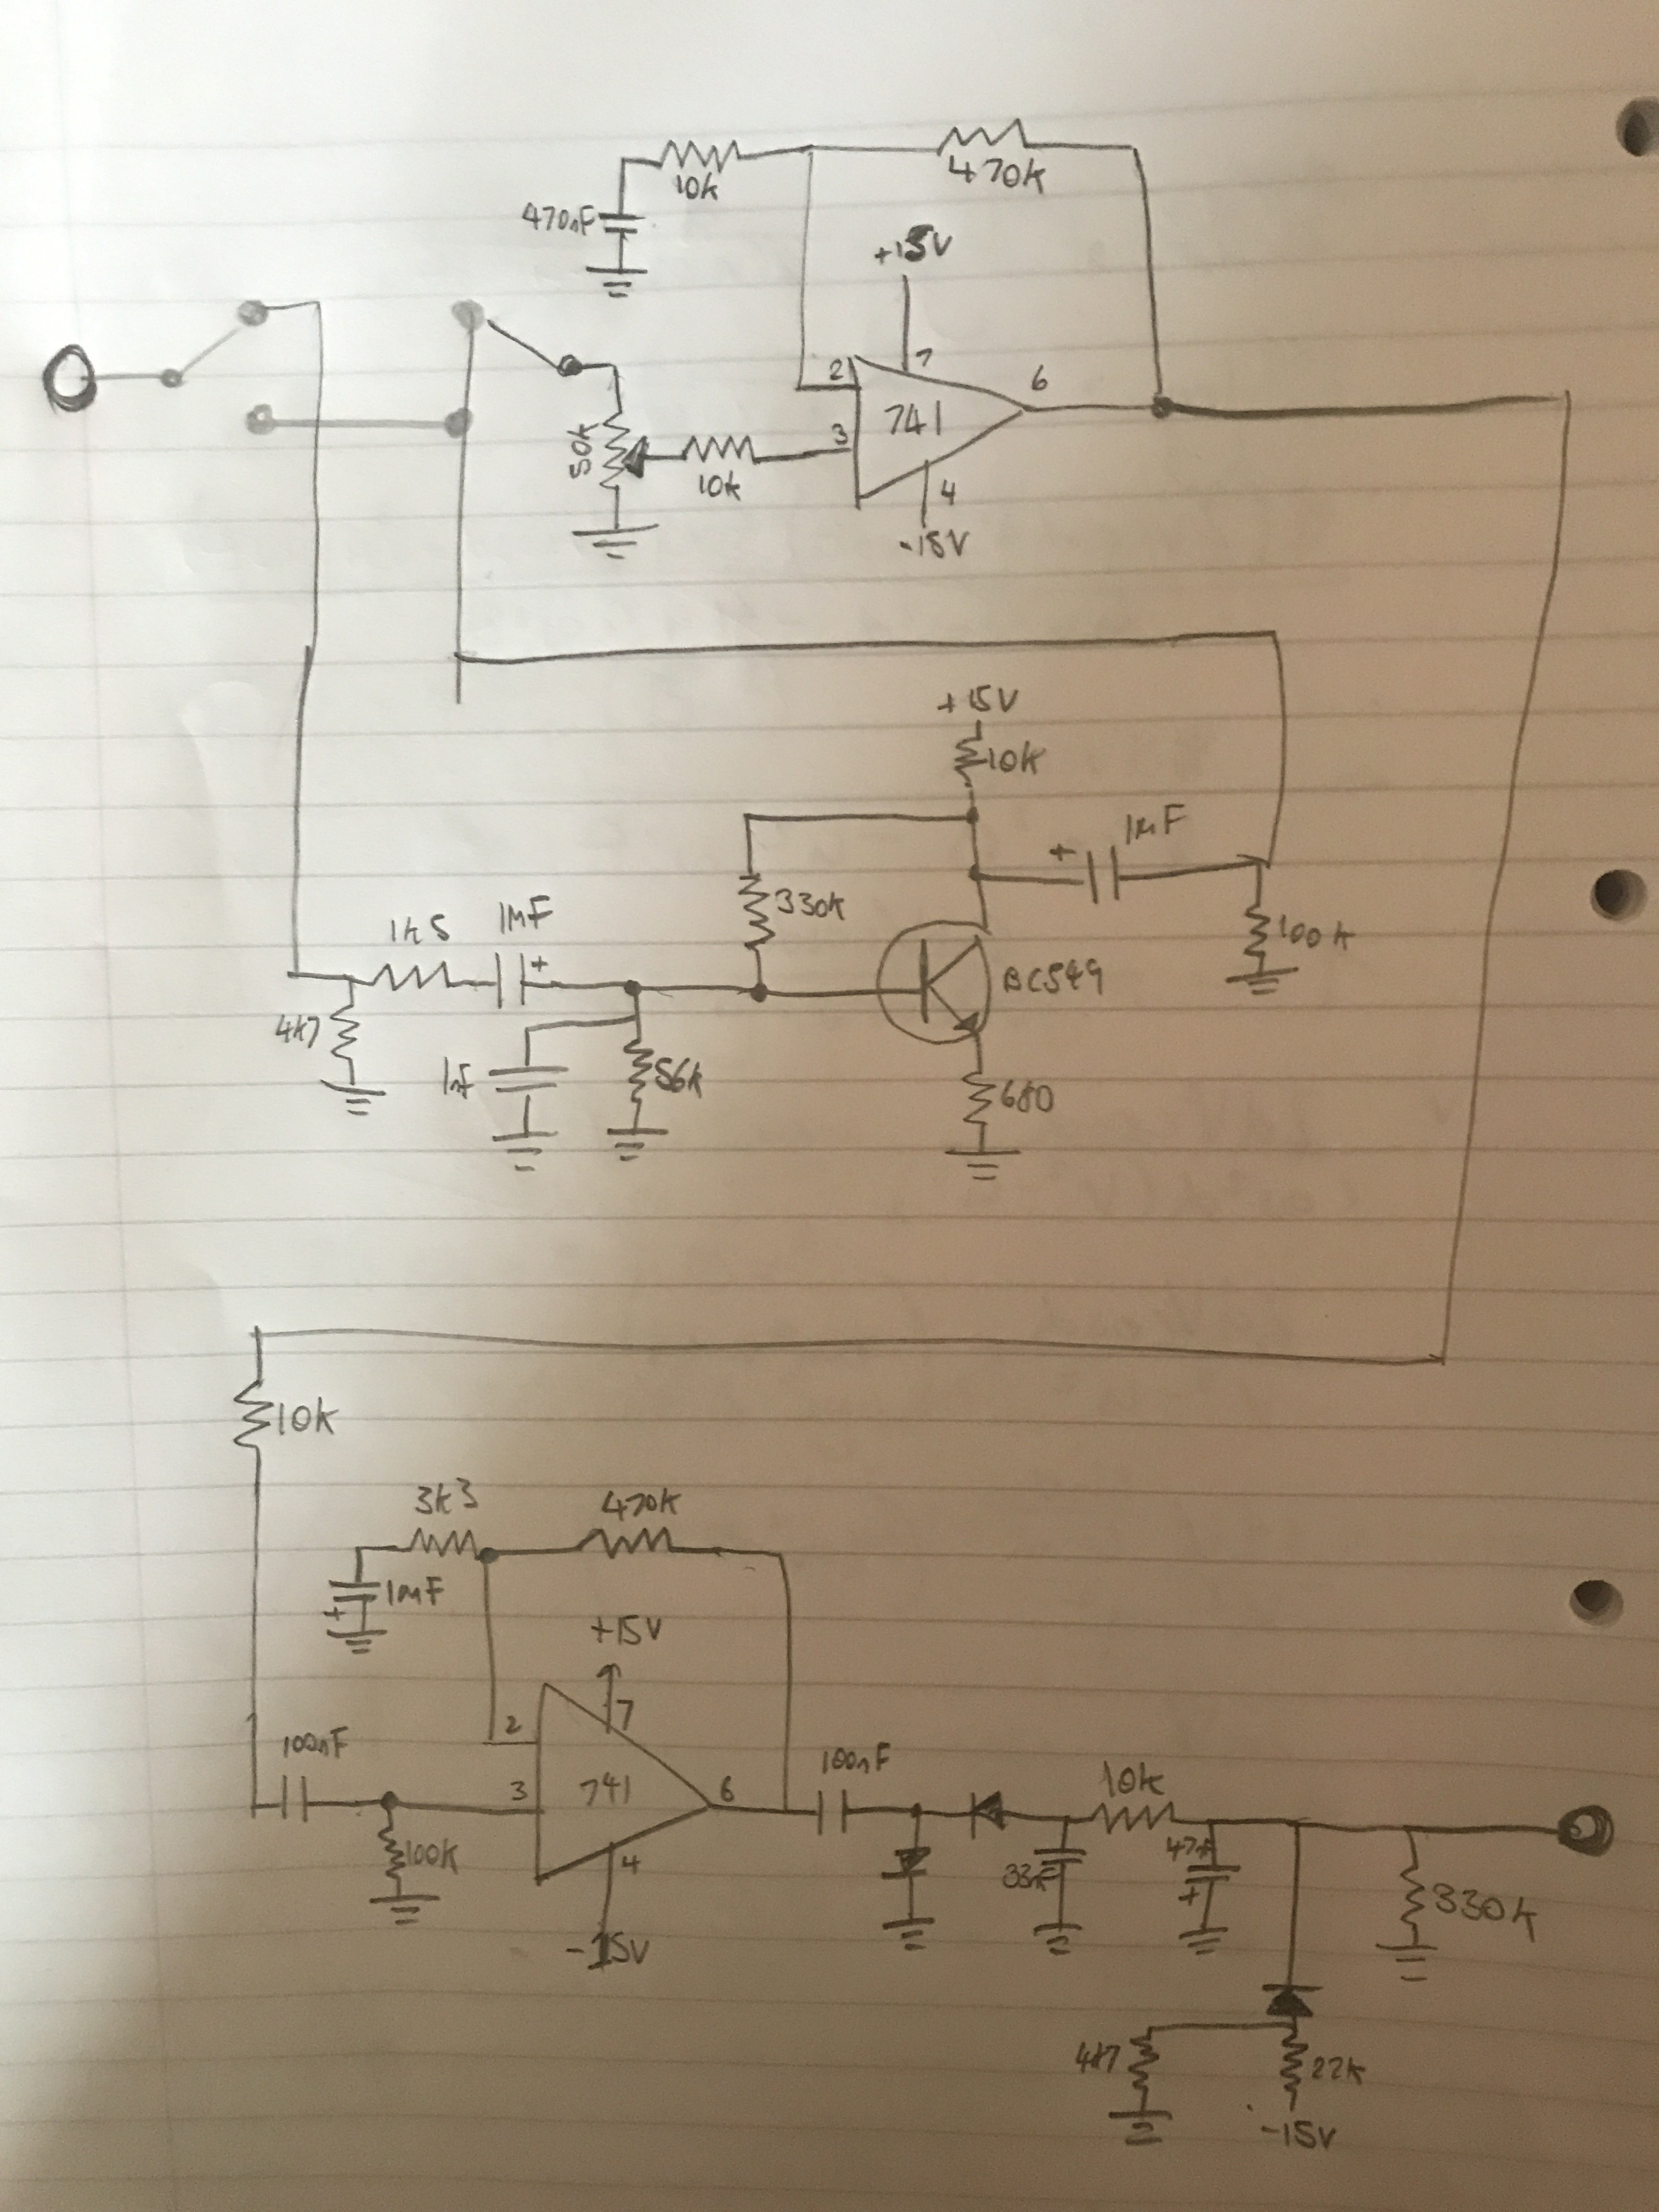 470k
10k
470nF
+15V
2
7
6
741
3
50k
10k
4
-15V
+15V
10k
1µF
+
330k
1k5
1µF
+
100k
BC549
4k7
1nF
56k
680
10k
3k3
470k
1µF
+
+15V
7
2
100nF
3
741
6
100nF
10k
100k
4
33nF
+
330k
-15V
4k7
22k
-15V